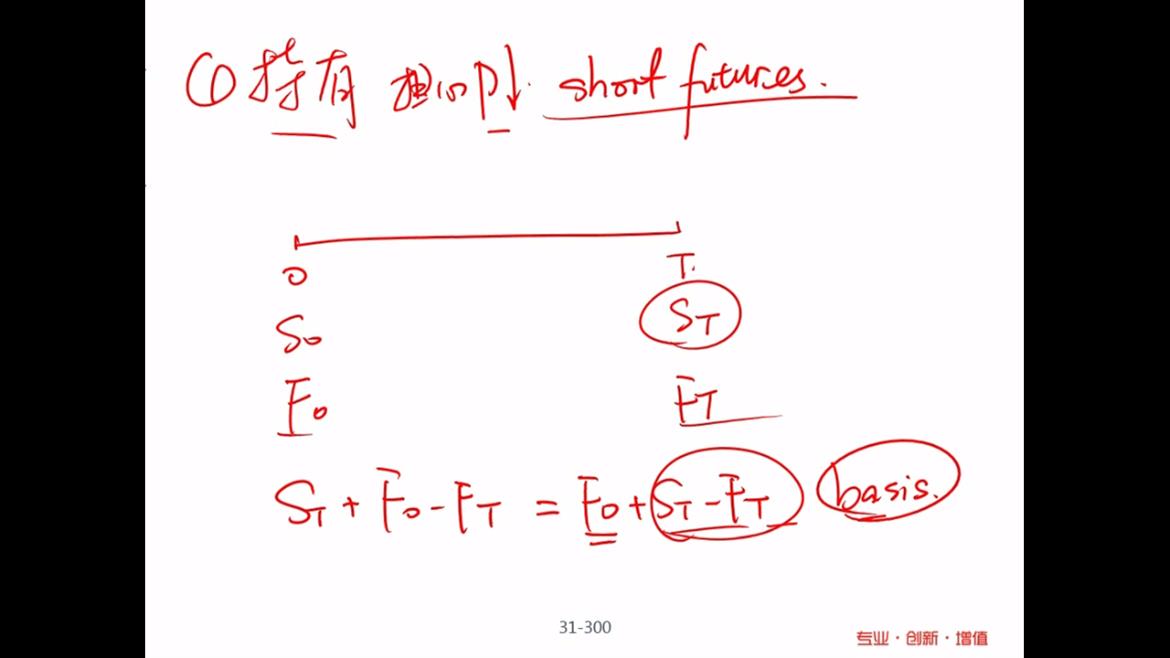 ① 持有 担心P↓. short futures.
0 T.
S₀ S_T
F₀ F_T
S_T + F₀ - F_T = F₀ + S_T - F_T basis.
31-300
专业·创新·增值